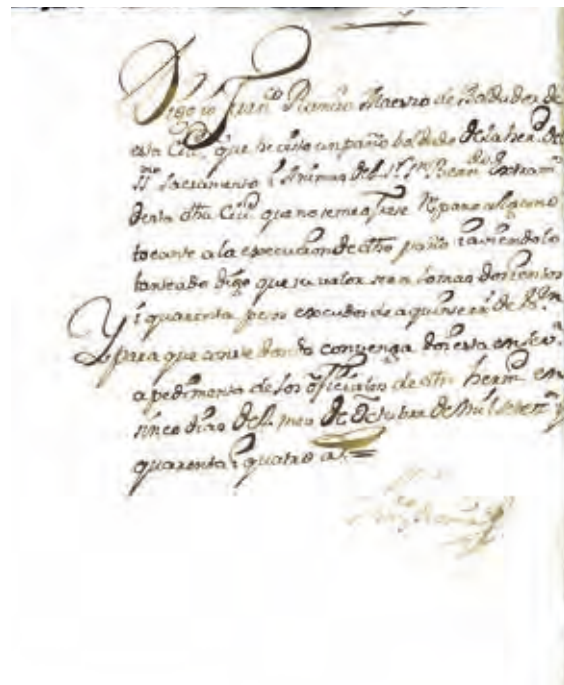 Digo io Juan Ramos Maesro de Boldador de
esta Ciu.d que he visto un paño boldado de la her.d del
SS.mo Sacramento i Animas del S.r
desta dha Ciu.d que no se me ofrese Reparo alguno
tocante a la execucion de dho paño i aviendolo
tanteado digo que su valor sera lo mas dosientos
i quarenta pesos escudos de a quinse r.s de v.n
Y para que conste donde convenga doi esta en Sev.a
a pedimento de los ofisiales de dha herm.d en
sinco dias del mes de Octubre de Mil setet.s y
quarenta i quatro a.s